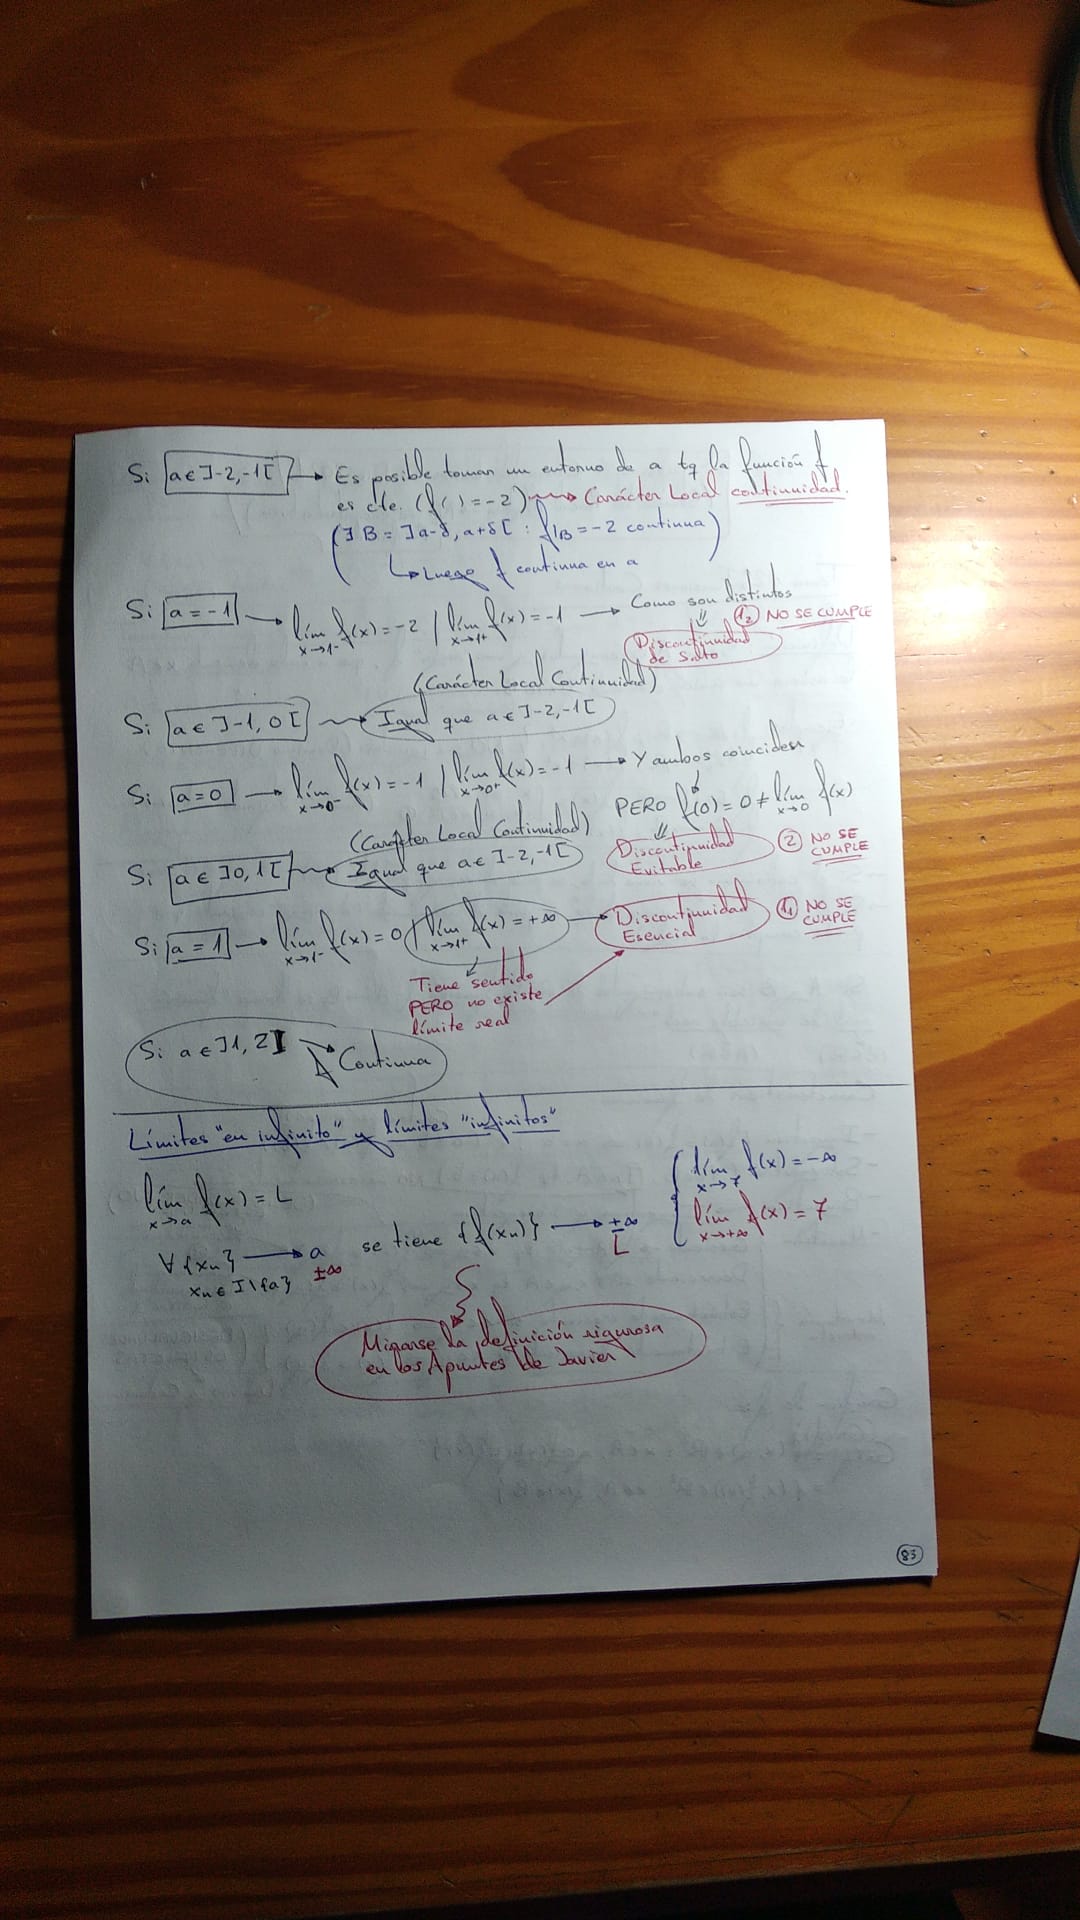 Si a∈]-2,-1[ → Es posible tomar un entorno de a tq la función f
es cte. (f( ) = -2) → Carácter Local continuidad.
(∃ B = ]a-δ, a+δ[ : f|B = -2 continua)
↳ Luego f continua en a
Si a = -1 → lím x→1⁻ f(x) = -2 / lím x→1⁺ f(x) = -1 → Como son distintos
⇓ 1₂ NO SE CUMPLE
Discontinuidad
de Salto
(Carácter Local Continuidad)
Si a ∈ ]-1, 0[ → Igual que a ∈ ]-2,-1[
Si a=0 → lím x→0⁻ f(x) = -1 / lím x→0⁺ f(x) = -1 → Y ambos coinciden
PERO f(0) = 0 ≠ lím x→0 f(x)
(Carácter Local Continuidad)
Si a ∈ ]0, 1[ → Igual que a ∈ ]-2,-1[
Discontinuidad
Evitable
② NO SE
CUMPLE
Si a = 1 → lím x→1⁻ f(x) = 0 / lím x→1⁺ f(x) = +∞ → Discontinuidad
Esencial
1₁ NO SE
CUMPLE
Tiene sentido
PERO no existe
límite real
Si a ∈ ]1, 2] → f Continua
Límites "en infinito" y límites "infinitos"
lím x→a f(x) = L
{ lím x→7 f(x) = -∞
lím x→+∞ f(x) = 7
∀ {xn} → a se tiene {f(xn)} → ±∞
xn ∈ I\{a} ±∞ L
Mirarse la definición rigurosa
en los Apuntes de Javier
83